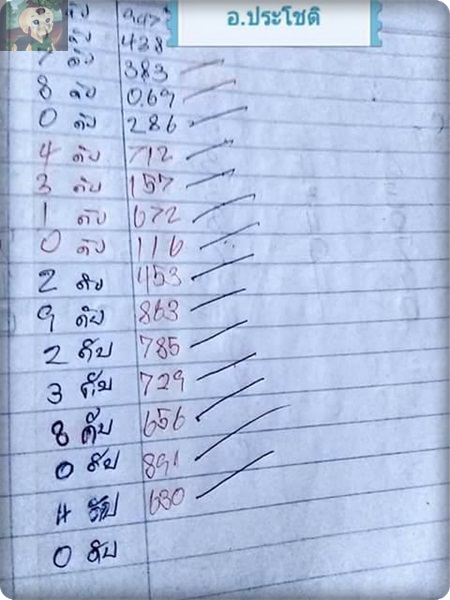 อ.ประโชติ
ดับ 947
ดับ 438
ดับ 383
8 ดับ 069
0 ดับ 286
4 ดับ 712
3 ดับ 157
1 ดับ 672
0 ดับ 116
2 ดับ 453
9 ดับ 863
2 ดับ 785
3 ดับ 729
8 ดับ 656
0 ดับ 891
4 ดับ 630
0 ดับ